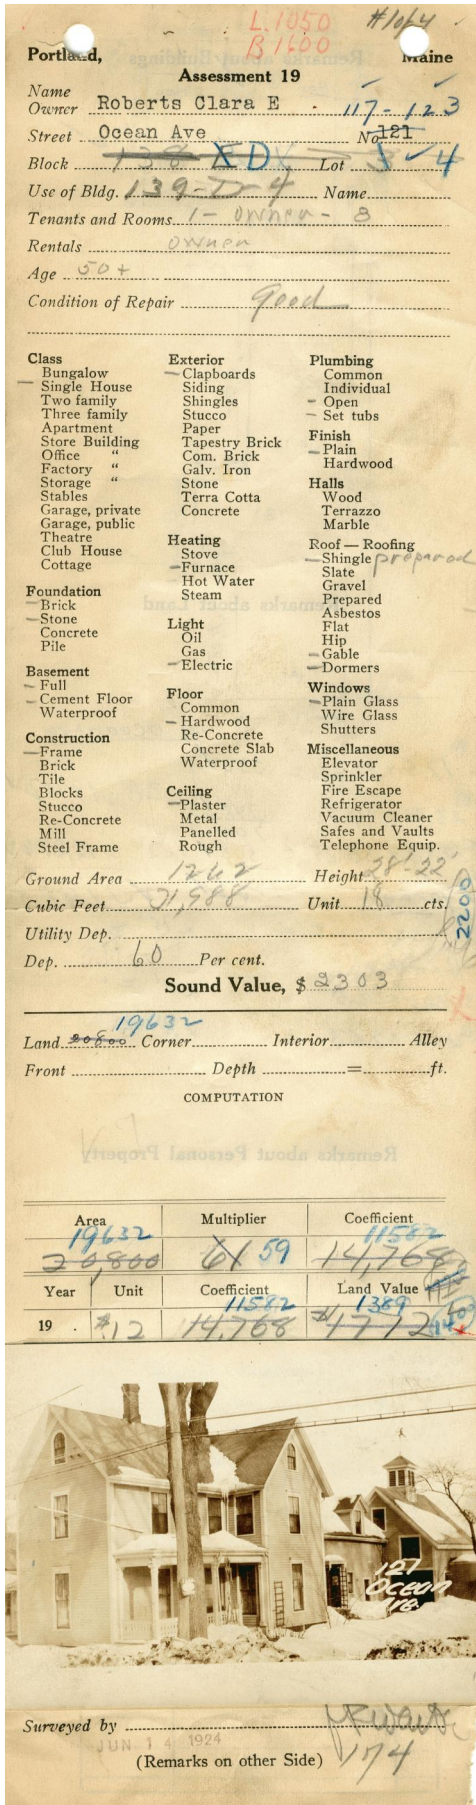 L.1050 #1 of 4
B 1600
Portland, Maine
Assessment 19
Name
Owner Roberts Clara E 117-123
Street Ocean Ave No 121
Block 138 X D Lot 3 4
Use of Bldg. 139-D-4 Name
Tenants and Rooms 1- owner - 8
Rentals owner
Age 50+
Condition of Repair Good
Class
Bungalow
Single House
Two family
Three family
Apartment
Store Building
Office "
Factory "
Storage "
Stables
Garage, private
Garage, public
Theatre
Club House
Cottage
Foundation
Brick
Stone
Concrete
Pile
Basement
Full
Cement Floor
Waterproof
Construction
Frame
Brick
Tile
Blocks
Stucco
Re-Concrete
Mill
Steel Frame
Exterior
Clapboards
Siding
Shingles
Stucco
Paper
Tapestry Brick
Com. Brick
Galv. Iron
Stone
Terra Cotta
Concrete
Heating
Stove
Furnace
Hot Water
Steam
Light
Oil
Gas
Electric
Floor
Common
Hardwood
Re-Concrete
Concrete Slab
Waterproof
Ceiling
Plaster
Metal
Panelled
Rough
Plumbing
Common
Individual
Open
Set tubs
Finish
Plain
Hardwood
Halls
Wood
Terrazzo
Marble
Roof — Roofing
Shingle prepared
Slate
Gravel
Prepared
Asbestos
Flat
Hip
Gable
Dormers
Windows
Plain Glass
Wire Glass
Shutters
Miscellaneous
Elevator
Sprinkler
Fire Escape
Refrigerator
Vacuum Cleaner
Safes and Vaults
Telephone Equip.
Ground Area 1262 Height 28'-22'
Cubic Feet 21,988 Unit 18 cts.
2200
Utility Dep.
Dep. 60 Per cent.
Sound Value, $ 2303
19632
Land 20800 Corner Interior Alley
Front Depth = ft.
COMPUTATION
Area Multiplier Coefficient
19632 11582
20,800 61 59 14,768
Year Unit Coefficient Land Value
11582 1389
19 . $.12 14,768 $1772
121
Ocean
Ave
Surveyed by
JUN 14 1924
(Remarks on other Side) 174